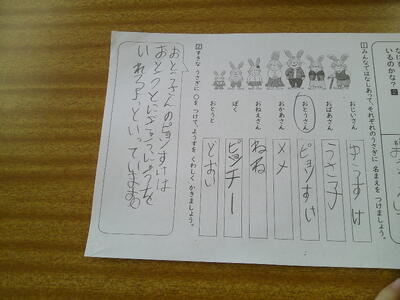 いるのかな?
1 みんなではなしあって、それぞれのうさぎに 名まえを つけましょう。
おじいさん
ゆうすけ
おばあさん
うさ子
おとうさん
ピョンすけ
おかあさん
メメ
おねえさん
ねね
ぼく
ピッチー
おとうと
とおい
2 すきな うさぎに○を つけて、ようすを くわしく かきましょう。
おとうさんのピョンすけは
おとうとに
いれろよといっています。